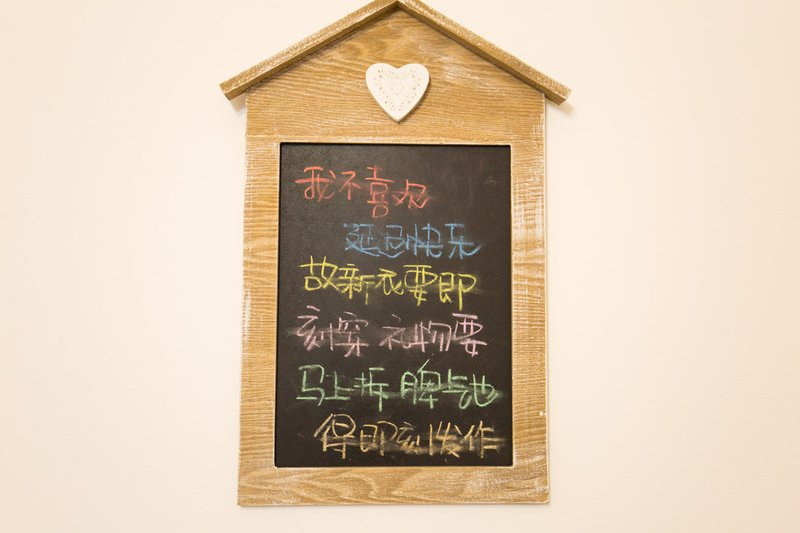 我不喜欢
延迟快乐
故新衣要即
刻穿 礼物要
马上拆 脾气也
得即刻发作